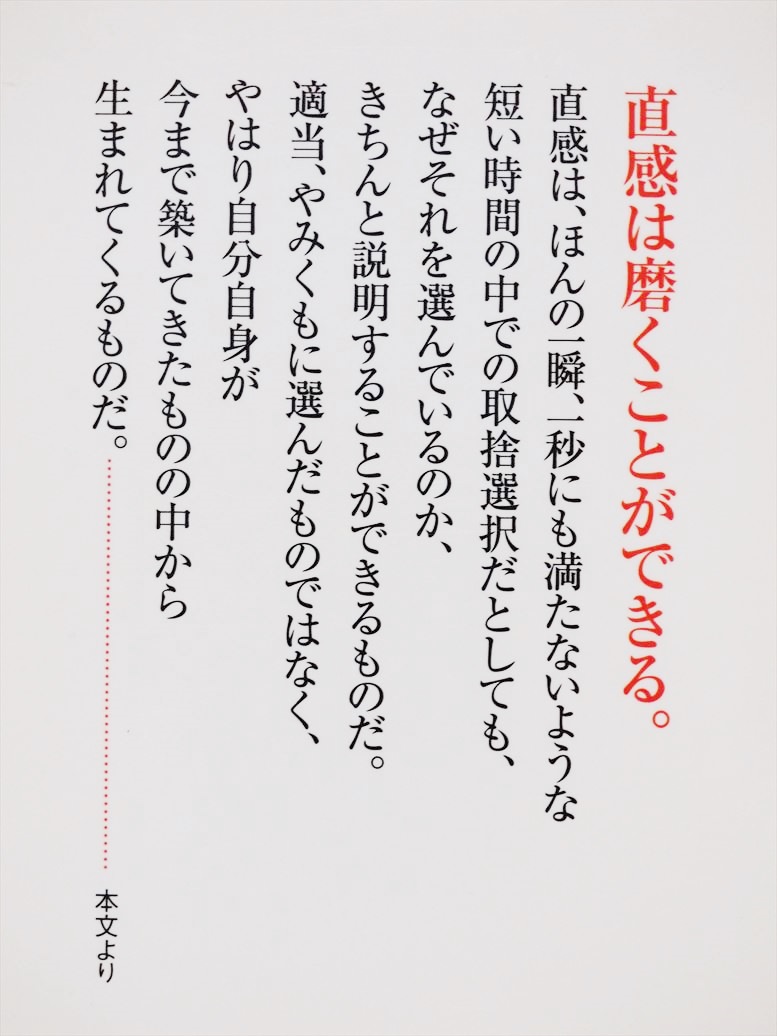 直感は磨くことができる。
直感は、ほんの一瞬、一秒にも満たないような
短い時間の中での取捨選択だとしても、
なぜそれを選んでいるのか、
きちんと説明することができるものだ。
適当、やみくもに選んだものではなく、
やはり自分自身が
今まで築いてきたものの中から
生まれてくるものだ。
本文より